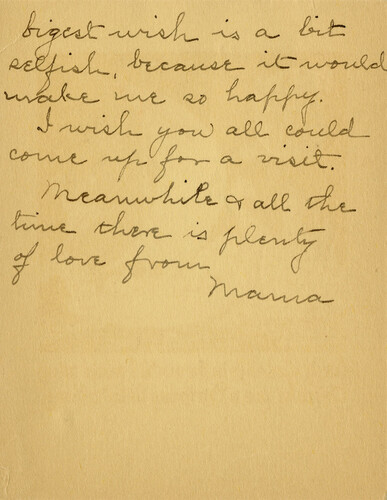 bigest wish is a bit
selfish, because it would
make me so happy.
I wish you all could
come up for a visit.
Meanwhile & all the
time there is plenty
of love from
Mama